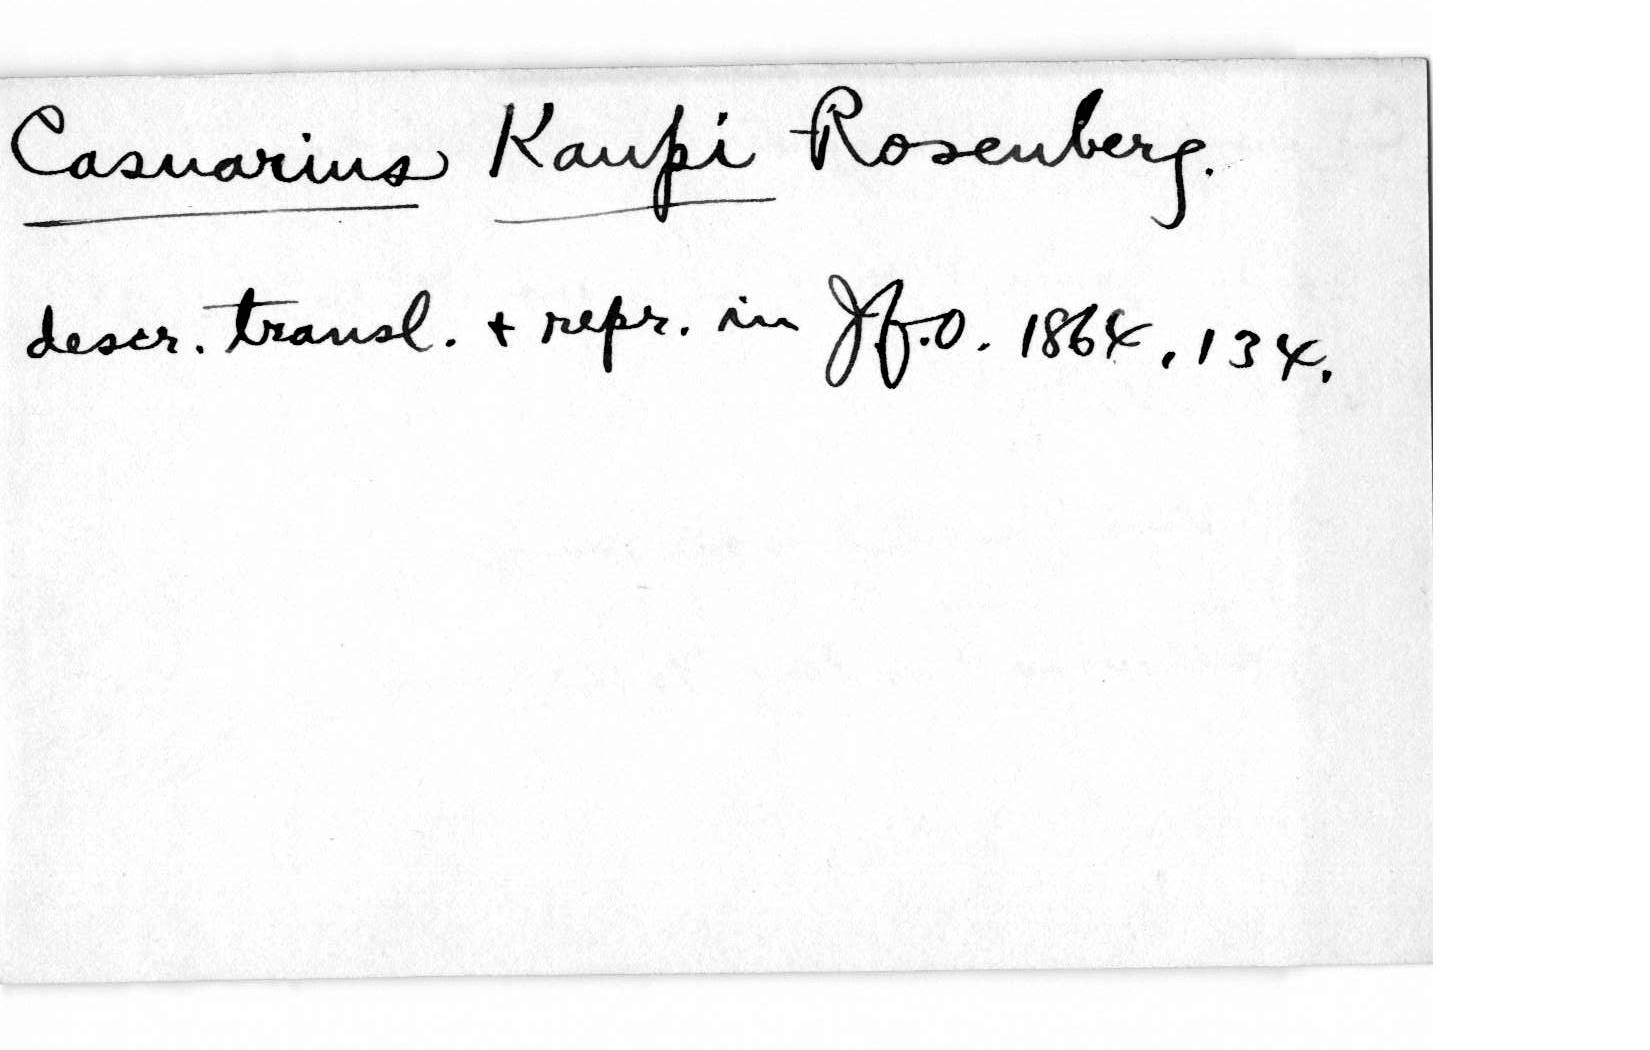 Casuarius Kaupi Rosenberg.
descr. transl. + repr. in J.f.O. 1864, 134.